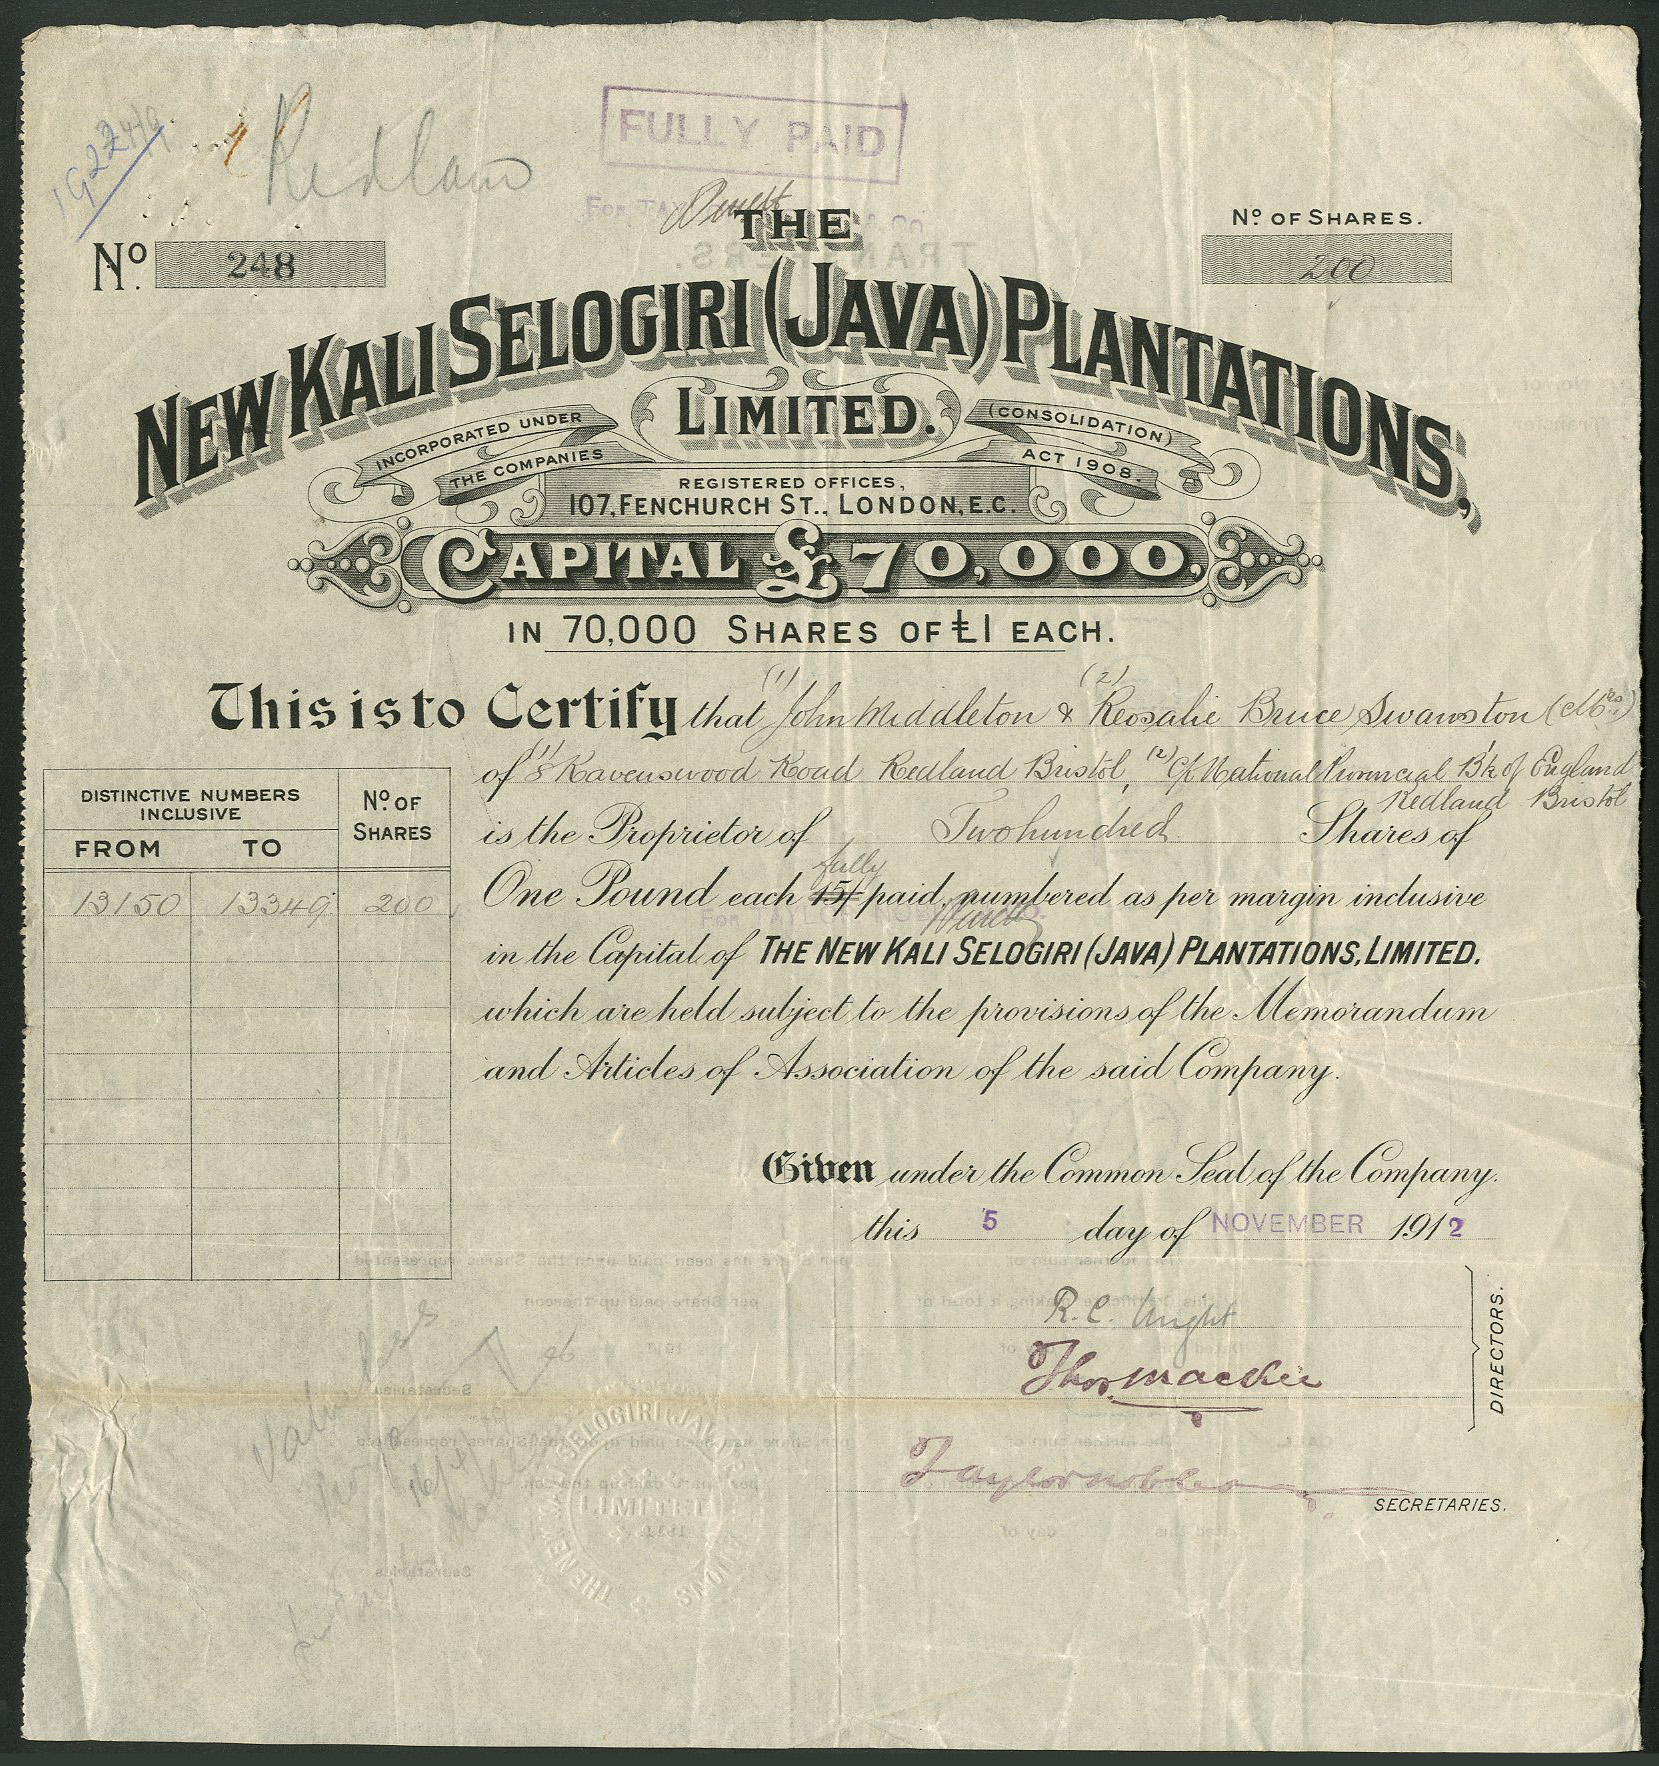 Redland
FULLY PAID
THE
No. 248
No. OF SHARES.
200
NEW KALI SELOGIRI (JAVA) PLANTATIONS,
LIMITED.
INCORPORATED UNDER THE COMPANIES (CONSOLIDATION) ACT 1908.
REGISTERED OFFICES,
107, FENCHURCH ST., LONDON, E.C.
CAPITAL £70,000,
IN 70,000 SHARES OF £1 EACH.
This is to Certify that (1) John Middleton & (2) Rosalie Bruce Swanston (Mrs)
of (1) 8 Ravenswood Road Redland Bristol, (2) c/o National Provincial B'k of England
Redland Bristol
is the Proprietor of Two hundred Shares of
fully
One Pound each 15/- paid, numbered as per margin inclusive
in the Capital of THE NEW KALI SELOGIRI (JAVA) PLANTATIONS, LIMITED.
which are held subject to the provisions of the Memorandum
and Articles of Association of the said Company.
DISTINCTIVE NUMBERS INCLUSIVE
No. OF SHARES
FROM TO
13150 13349 200
Given under the Common Seal of the Company.
this 5 day of NOVEMBER 1912
R. C. Wright
Thos. Mackie
DIRECTORS.
Taylor Noble & Co.
SECRETARIES.